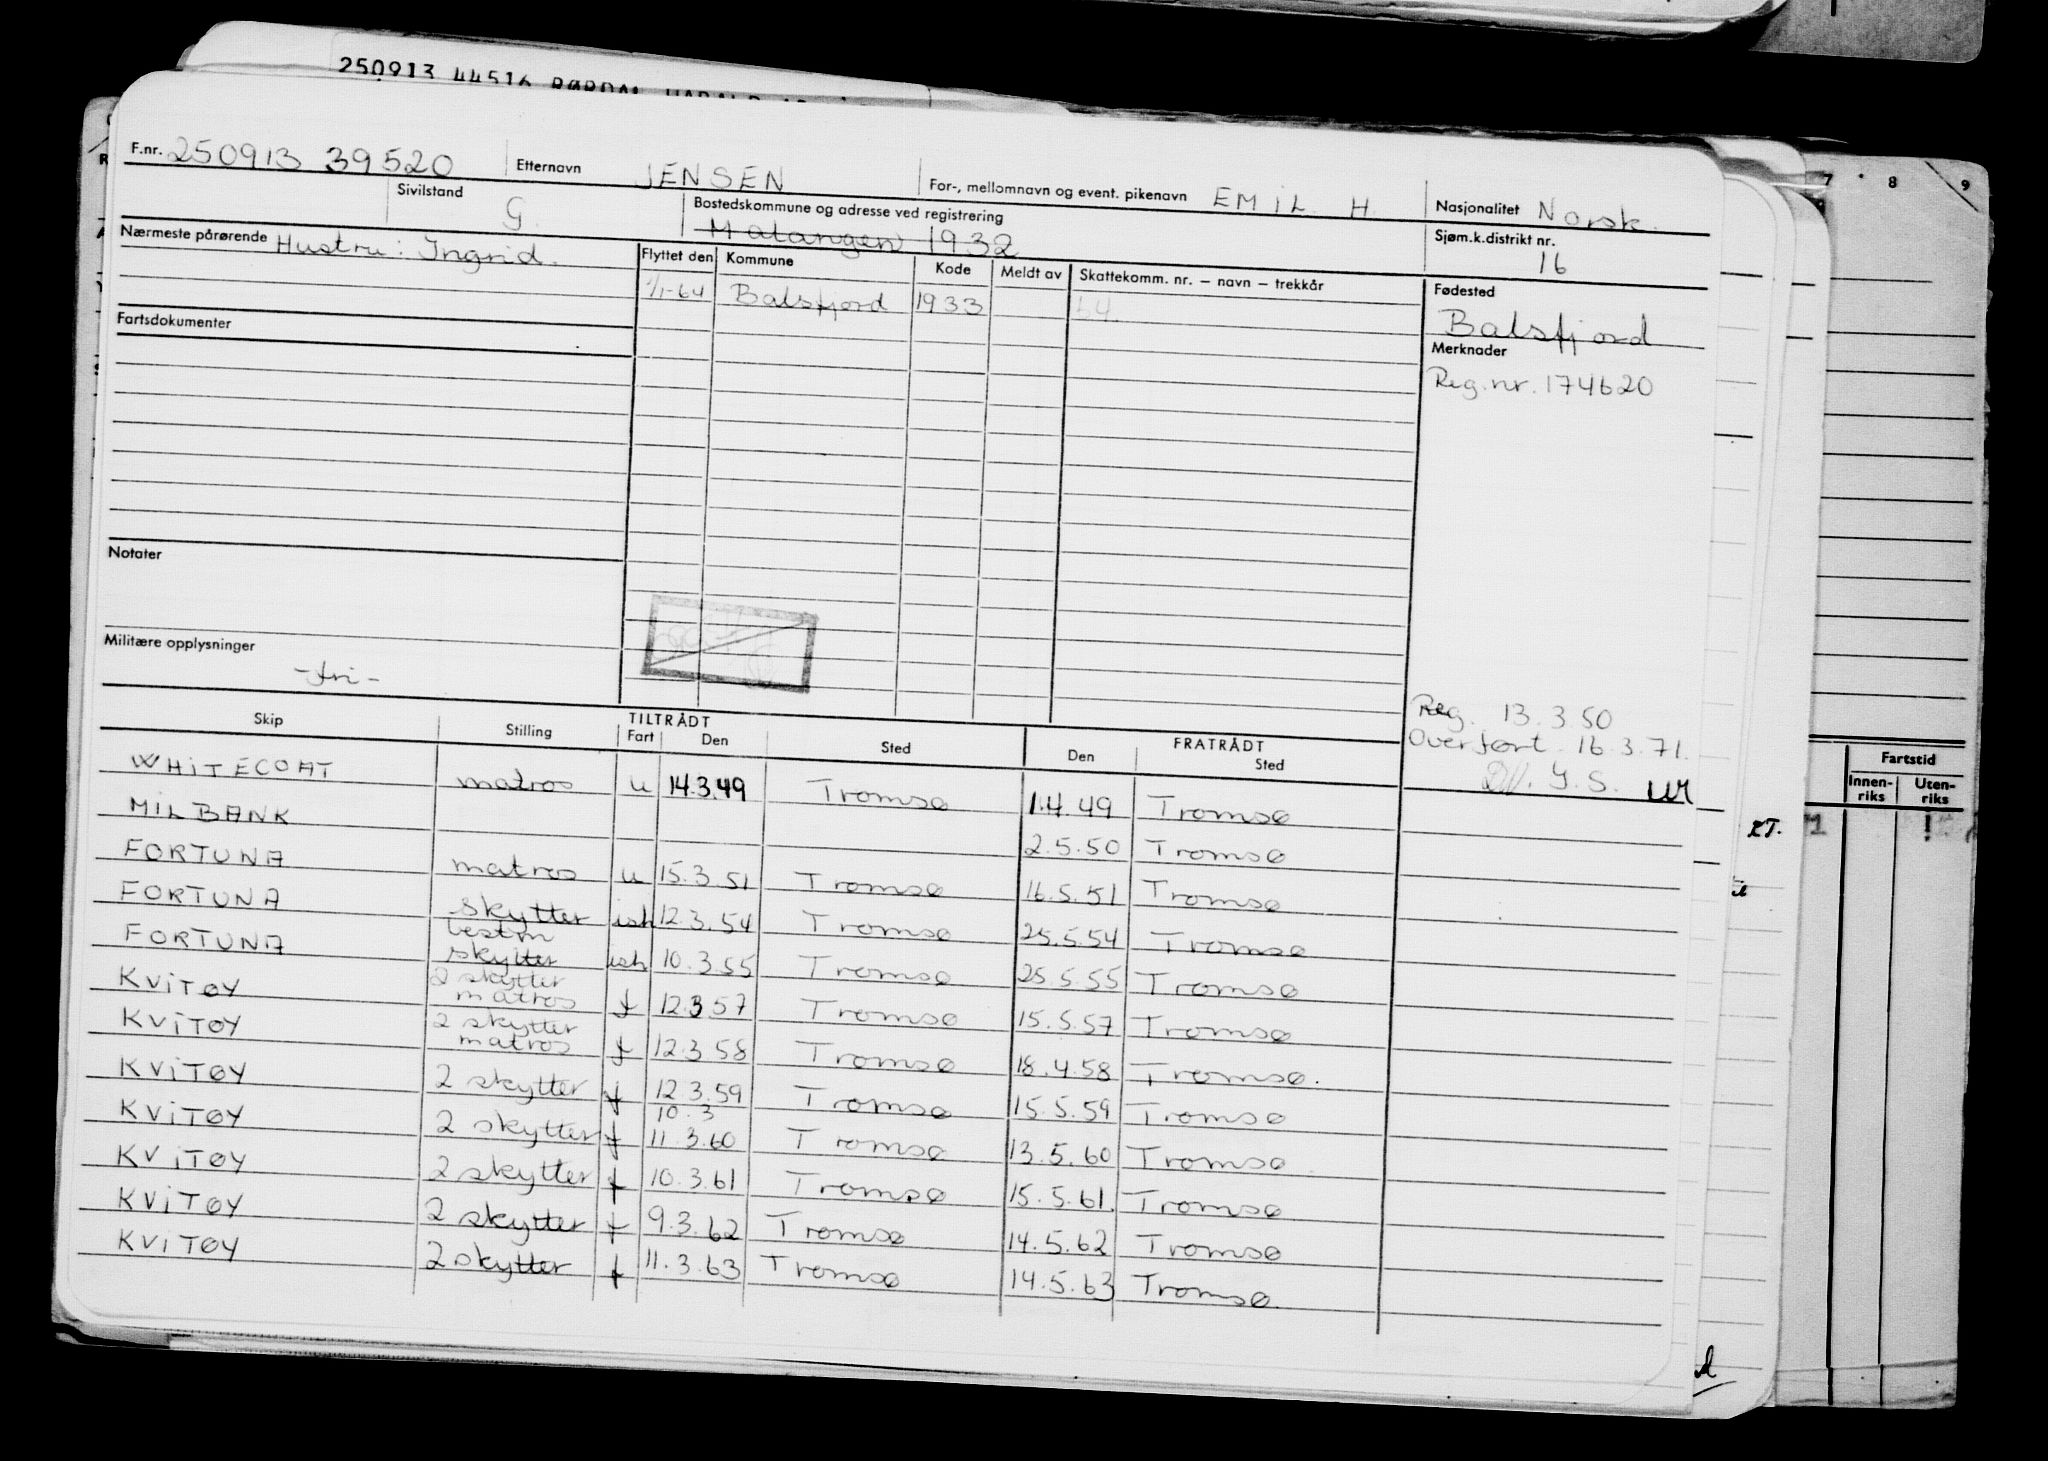 250913 44516 RØRDAL HARALD
F.nr. 250913 39520 Etternavn JENSEN For-, mellomnavn og event. pikenavn EMIL H. Nasjonalitet Norsk.
Sivilstand G. Bostedskommune og adresse ved registrering Malangen 1932 Sjøm.k.distrikt nr. 16
Nærmeste pårørende Hustru: Ingrid. Flyttet den Kommune Kode Meldt av Skattekomm. nr. – navn – trekkår Fødested
1/1-64 Balsfjord 1933 64 Balsfjord
Fartsdokumenter
Merknader
Reg.nr. 174620
Notater
Militære opplysninger
-fri-
Reg. 13.3.50
Overført 16.3.71.
Skip Stilling TILTRÅDT Fart Den Sted FRATRÅDT Den Sted
WHITECOAT matros u 14.3.49 Tromsø 1.4.49 Tromsø
MILBANK 2.5.50 Tromsø
FORTUNA matros u 15.3.51 Tromsø 16.5.51 Tromsø
FORTUNA skytter ish 12.3.54 Tromsø 25.5.54 Tromsø
FORTUNA bestm skytter ish 10.3.55 Tromsø 25.5.55 Tromsø
KVITØY 2 skytter matros f 12.3.57 Tromsø 15.5.57 Tromsø
KVITØY 2 skytter matros f 12.3.58 Tromsø 18.4.58 Tromsø.
KVITØY 2 skytter f 12.3.59 Tromsø 15.5.59 Tromsø
KVITØY 2 skytter f 10.3 11.3.60 Tromsø 13.5.60 Tromsø
KVITØY 2 skytter f 10.3.61 Tromsø 15.5.61. Tromsø
KVITØY 2 skytter f 9.3.62 Tromsø 14.5.62 Tromsø
KVITØY 2 skytter f 11.3.63 Tromsø 14.5.63 Tromsø.
7 8 9
Fartstid
Innen-riks Uten-riks